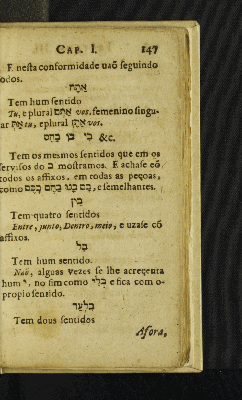 CAP. I. 147
E nesta conformidade uaõ seguindo
odos.
Tem hum sentido
Tu, e plural אַתֶּם vos. femenino singu-
ar אַתְּ tu, e plural אַתֶּן vos.
בִּי בוֹ בָּהֶם &c.
Tem os mesmos sentidos que em os
servisos do ב mostramos. E achase eõ
todos os affixos, em todas as peçoas,
como בָּם בָּנוּ בָּהֶם בָּכֶם, e semelhantes.
בֵּין
Tem quatro sentidos
Entre, junto, Dentro, meio, e uzase cõ
affixos.
בַּל
Tem hum sentido.
Naõ, alguas vezes se lhe acreçenta
hum י, no fim como בְּלִי e fica com o
propio sentido.
בִּלְעֲד
Tem dous sentidos
Afora,